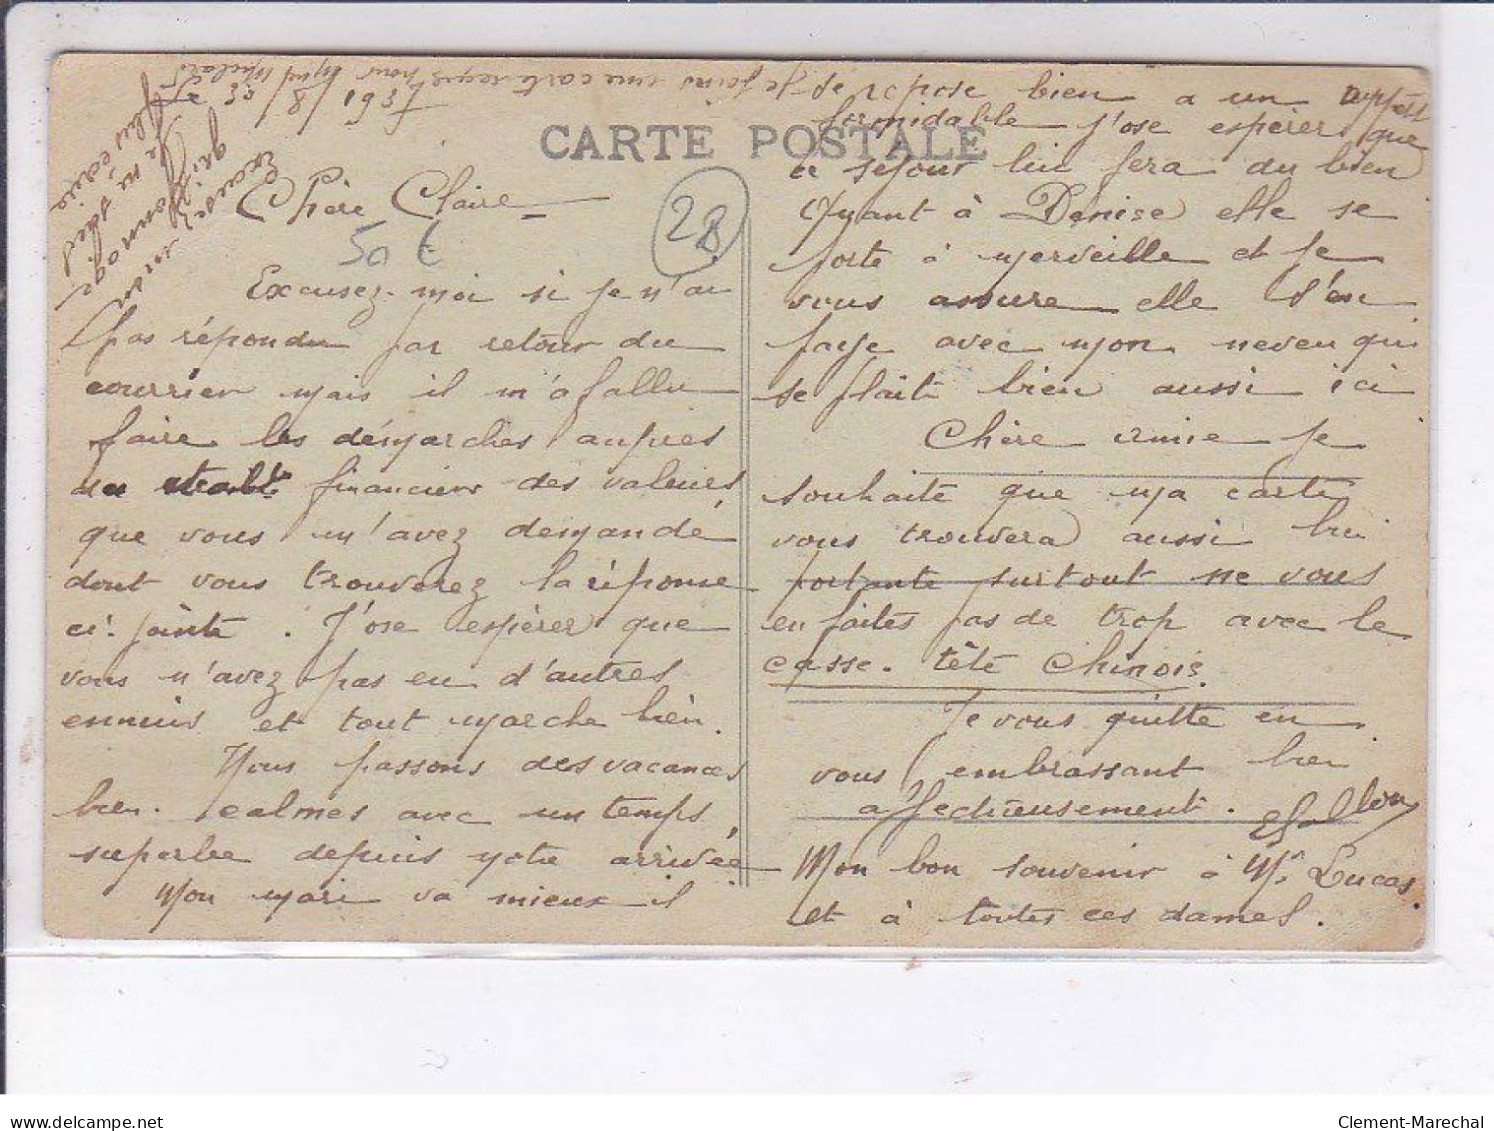 CARTE POSTALE
Chère Claire
50 t
28
Excusez-moi si je n'ai
pas répondu par retour du
courrier mais il m'a fallu
faire les démarches aupres
du financier des valeurs
que vous m'avez demandé
dont vous trouverez la réponse
ci-jointe. J'ose espèrer que
vous n'avez pas eu d'autres
ennuis et tout marche bien.
Nous passons des vacances
bien calmes avec un temps
superbe depuis notre arrivée
Mon mari va mieux il
se repose bien a un appétit
formidable j'ose espérer que
ce séjour lui fera du bien
Quant à Denise elle se
porte à merveille et je
vous assure elle s'en
paye avec mon neveu qui
se plait bien aussi ici
Chère amie je
souhaite que ma carte
vous trouvera aussi bien
portante surtout ne vous
en faites pas de trop avec le
casse-tête Chinois.
Je vous quitte en
vous embrassant bien
affectueusement.
Mon bon souvenir à Mr Lucas
et à toutes ces dames.
je joins une carte reçue pour
Excusez mon
gri
je ne sais
plus écrire
Clement-Marechal
delcampe.net